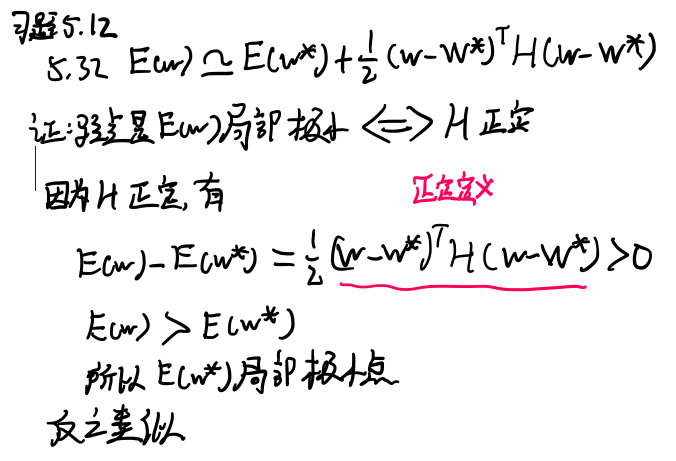 习题5.12
5.32 E(w) ≃ E(w*) + 1/2 (w-w*)ᵀH(w-w*)
证:驻点是E(w)局部极小 <=> H 正定
因为 H 正定, 有
正定定义
E(w) - E(w*) = 1/2 (w-w*)ᵀH(w-w*) > 0
E(w) > E(w*)
所以 E(w*) 局部极小点
反之类似